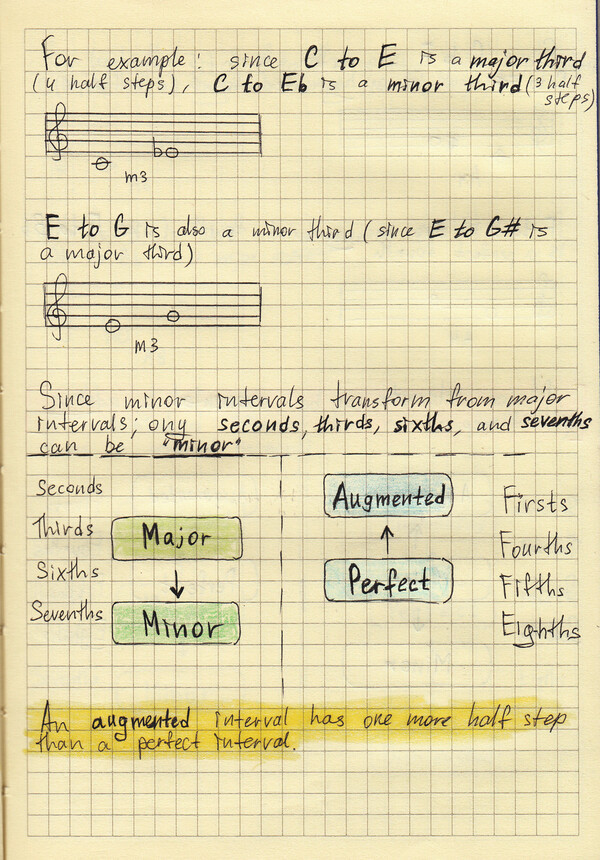 For example: since C to E is a major third
(4 half steps), C to Eb is a minor third (3 half
steps)
m3
E to G is also a minor third (since E to G# is
a major third)
m3
Since minor intervals transform from major
intervals; ony seconds, thirds, sixths, and sevenths
can be "minor"
Seconds
Thirds
Sixths
Sevenths
Major
Minor
Augmented
Perfect
Firsts
Fourths
Fifths
Eighths
An augmented interval has one more half step
than a perfect interval.